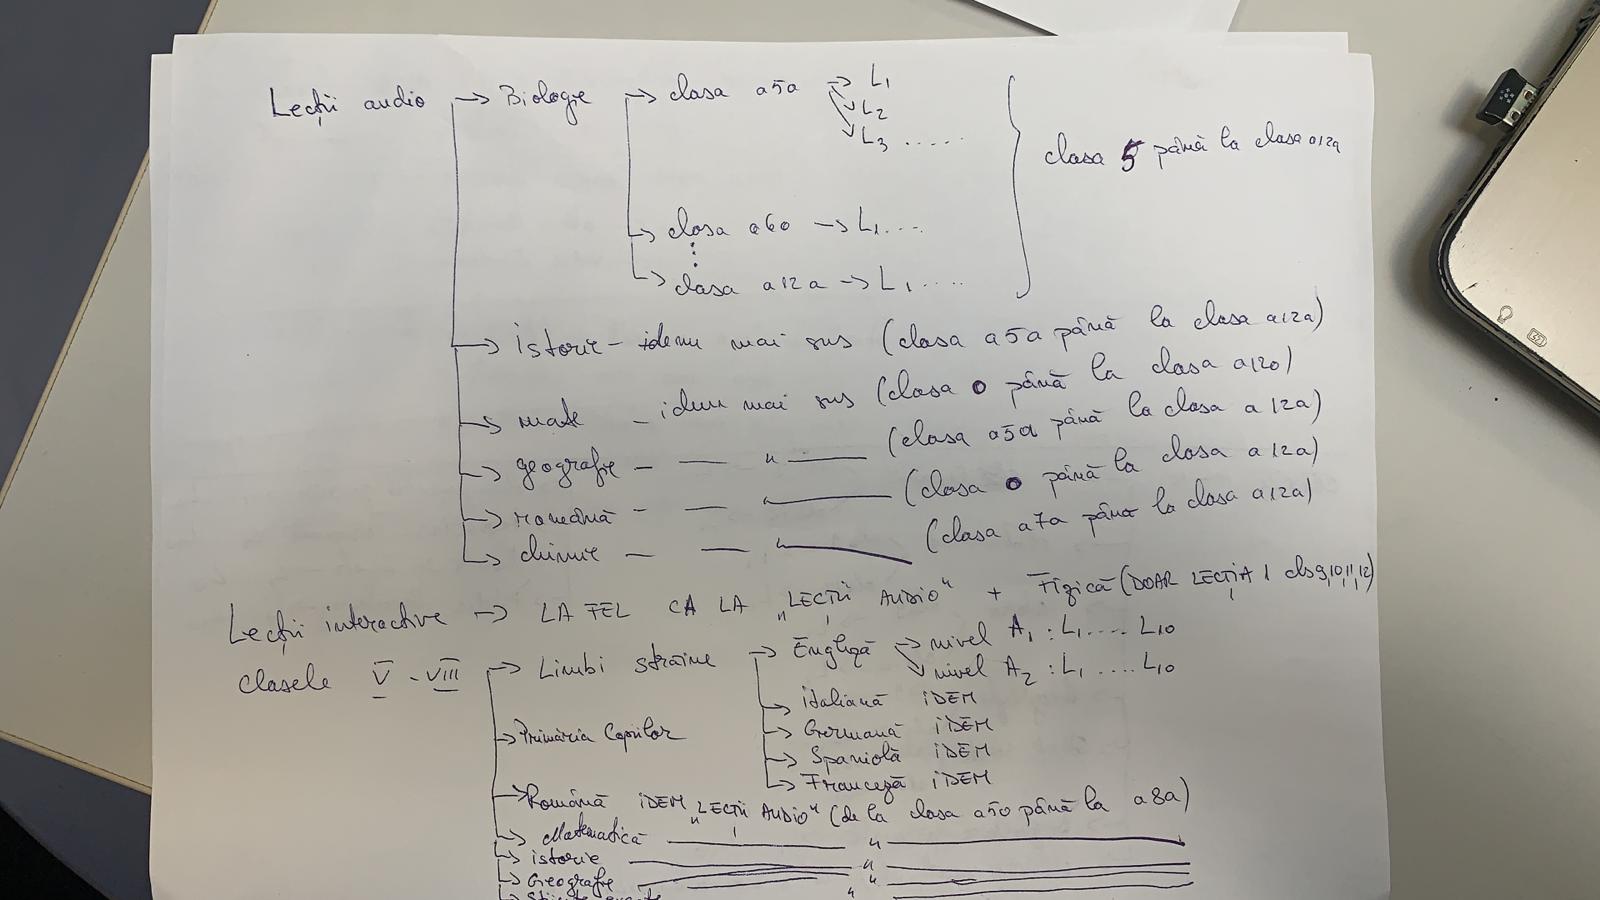 Lecții audio → Biologie → clasa a5a → L1
L2
L3 .....
clasa 5 până la clasa a12a
clasa a6a → L1....
clasa a12a → L1.....
istorie - idem mai sus (clasa a5a până la clasa a12a)
mate - idem mai sus (clasa 0 până la clasa a12a)
geografie - — " — (clasa a5a până la clasa a12a)
română - — " — (clasa 0 până la clasa a12a)
chimie - — " — (clasa a7a până la clasa a12a)
Lecții interactive → LA FEL CA LA „LECȚII AUDIO" + Fizică (DOAR LECȚIA 1 cls 9,10,11,12)
clasele V - VIII → Limbi străine → Engleză → nivel A1 : L1.... L10
nivel A2 : L1 ..... L10
italiană iDEM
Germană iDEM
Primăria Copiilor
Spaniolă iDEM
Franceză iDEM
Română iDEM „LECȚII AUDIO" (de la clasa a5a până la a8a)
Matematică — " —
istorie — " —
Geografie — " —